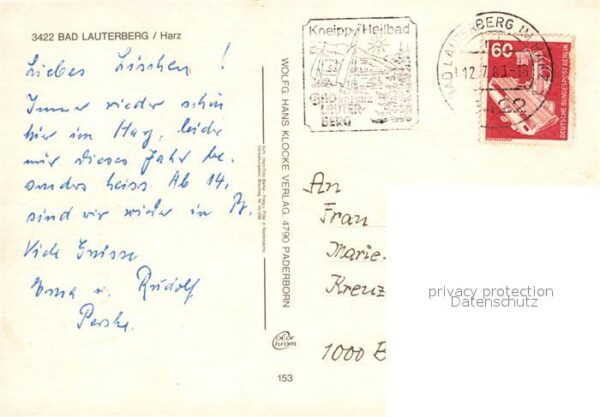 3422 BAD LAUTERBERG / Harz
Liebes Lisschen!
Immer wieder schön
hier im Harz, leider
nur dieses Jahr be-
sonders heiss. Ab 14.
sind wir wieder in B.
Viele Grüsse
Erna u. Rudolf
WOLFG. HANS KLOCKE VERLAG, 4790 PADERBORN
153
color
chrom
Kneipp-Heilbad
BAD
LAUTER
BERG
BAD LAUTERBERG IM HARZ
12.7.83
60
DEUTSCHE BUNDESPOST BERLIN
An
Frau
Marie
Kreuz
1000 B
privacy protection
Datenschutz